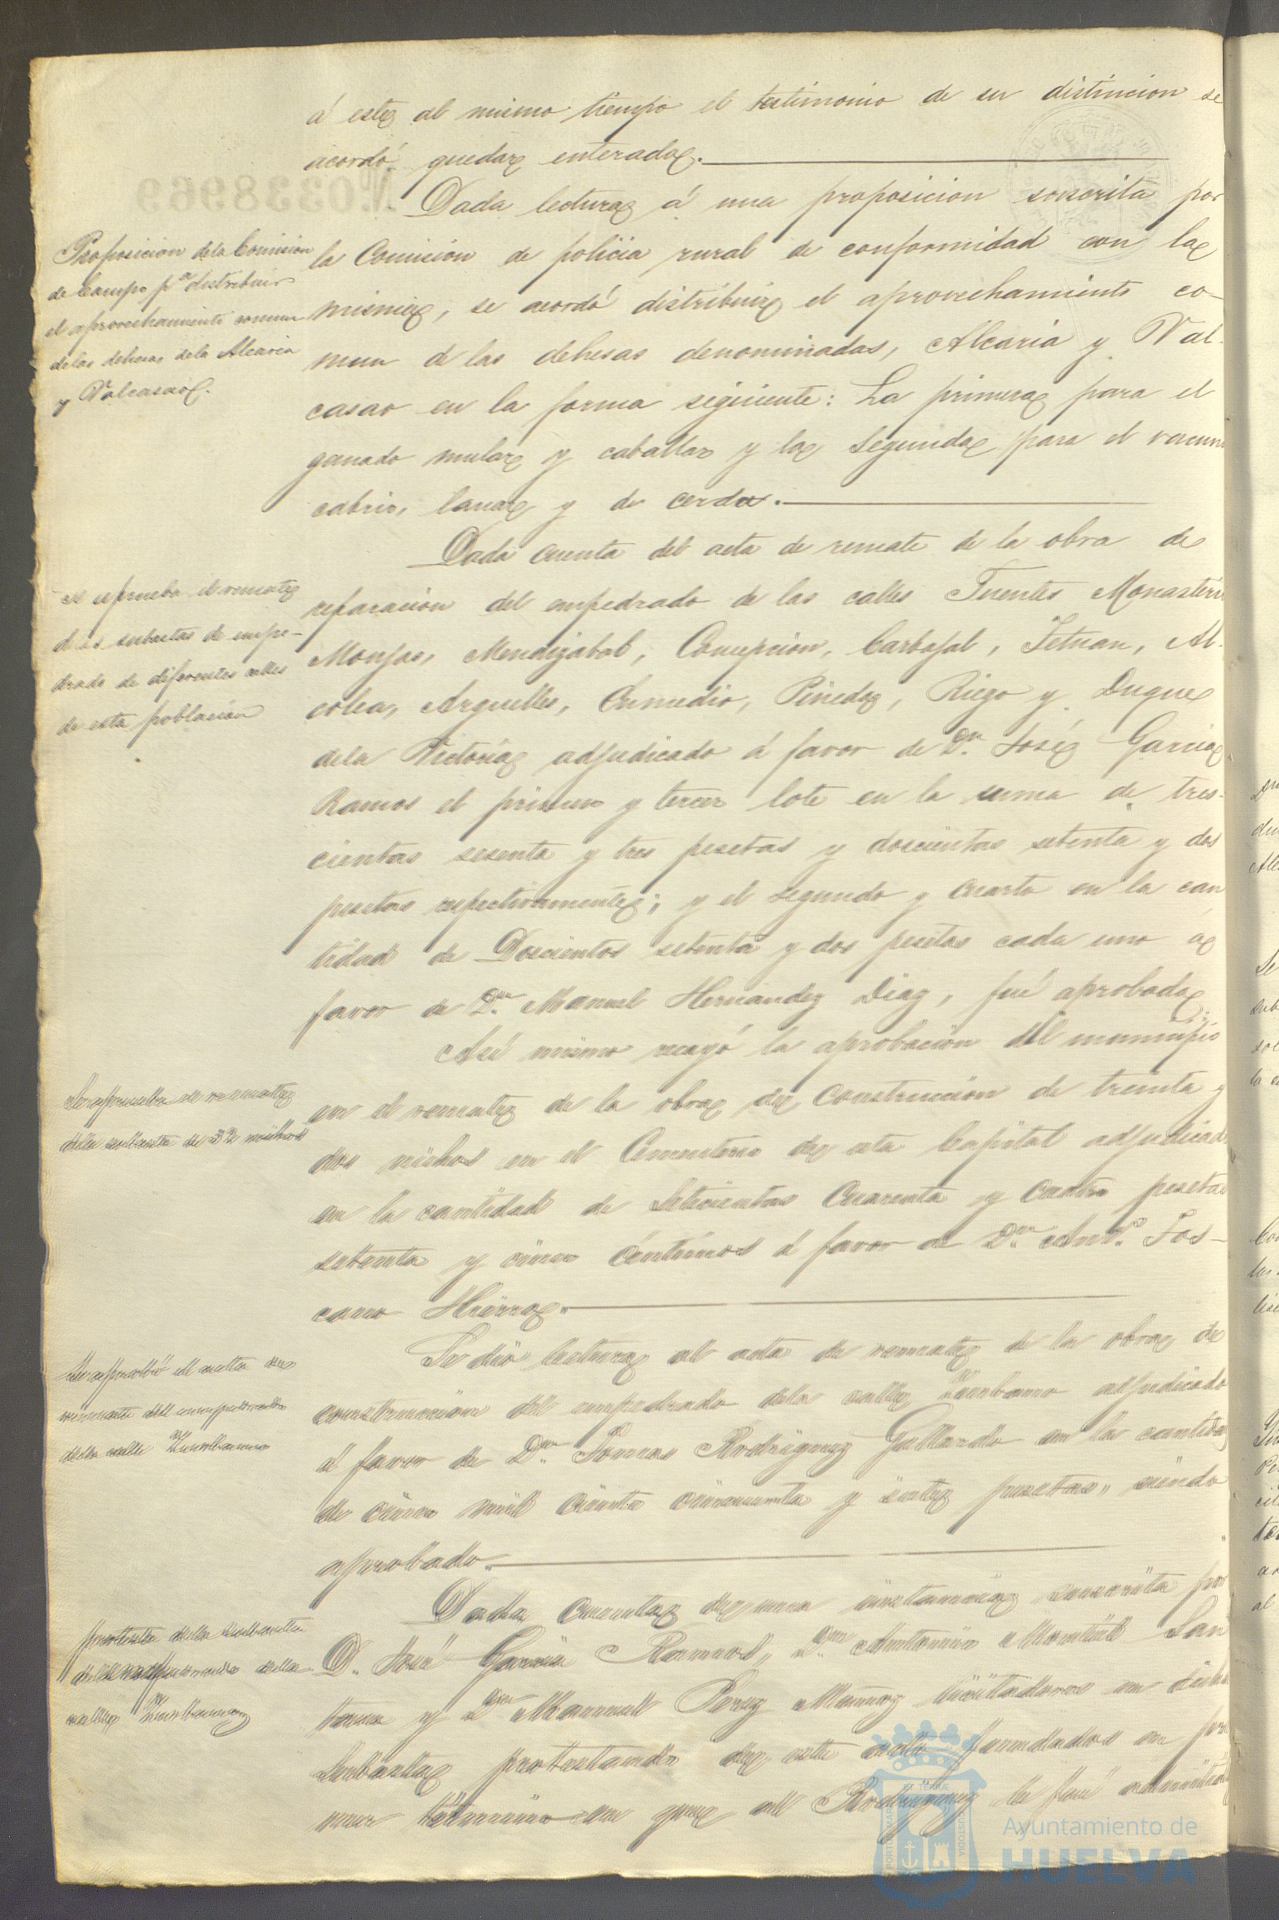 á este al mismo tiempo el testimonio de su distincion se
acordó quedar enterada.
Dada lectura á una proposicion suscrita por
la Comision de policia rural de conformidad con la
misma, se acordó distribuir el aprovechamiento co-
mun de las dehesas denominadas, Alcaria y Val-
casao en la forma siguiente: La primera para el
ganado mular y caballar y la segunda para el vacuno
cabrio, lanar y de cerda.
Proposicion de la Comision
de Campo pª distribuir
el aprovechamiento comun
de las dehesas de la Alcaria
y Valcasao.
Dada cuenta del acta de remate de la obra de
reparacion del empedrado de las calles Fuentes Monasterio
Monjas, Mendizabal, Concepcion, Carbajal, Tetuan, Al-
colea, Arguelles, Enmedio, Pineda, Riego y Duque
de la Victoria adjudicado á favor de Dn. José Garcia
Ramos el primer y tercer lote en la suma de tres-
cientas sesenta y tres pesetas y doscientas setenta y dos
pesetas respectivamente; y el segundo y cuarto en la can
tidad de Doscientos setenta y dos pesetas cada uno á
favor de Dn. Manuel Hernandez Diaz, fué aprobada.
se aprueba el remate
de las subastas de empe-
drado de diferentes calles
de esta poblacion
Asi mismo recayó la aprobacion del municipio
en el remate de la obra de construccion de treinta y
dos nichos en el Cementerio de esta Capital adjudicado
en la cantidad de Setecientas Cuarenta y Cuatro pesetas
setenta y cinco centimos á favor de Dn. Antº. Tos-
cano Hierro.
Se aprueba el remate
de la subasta de 32 nichos
Se dio lectura al acta de remate de la obra de
construccion del empedrado de la calle Zurbano adjudicado
á favor de Dn. Tomas Rodriguez Gallardo en la cantidad
de cinco mil ciento cincuenta y siete pesetas, siendo
aprobado.
Se aprobó el acta de
remate del empedrado
de la calle Zurbano
Dada cuenta de una instancia suscrita por
D. José Garcia Ramos, Dn Antonio Montiel San
tana y Dn Manuel Perez Muñoz licitadores en dicha
subasta protestando de este acto fundados en pri
mer término en que al Rodriguez le fué admitida
protesta de la subasta
del empedrado de la
calle Zurbano
Nº 0338969
Ayuntamiento de
HUELVA